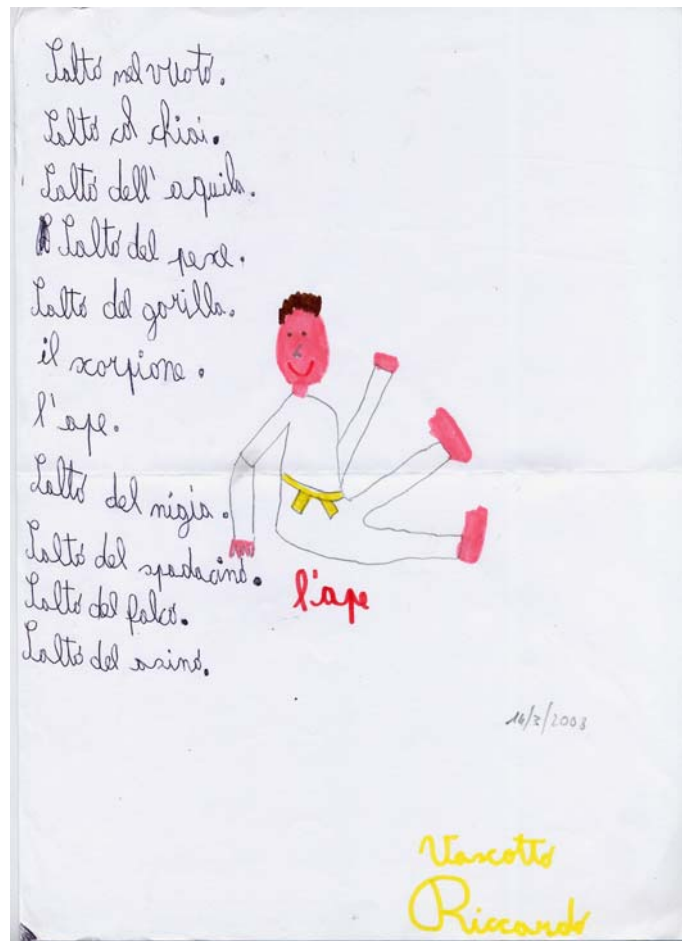 Salto nel vuoto.
Salto col chiai.
Salto dell' aquila.
Salto del pexe.
Salto del gorilla.
il scorpione.
l'ape.
Salto del nigia.
Salto del spadacino.
Salto del falco.
Salto del asino.
l'ape
14/3/2008
Vascotto
Riccardo